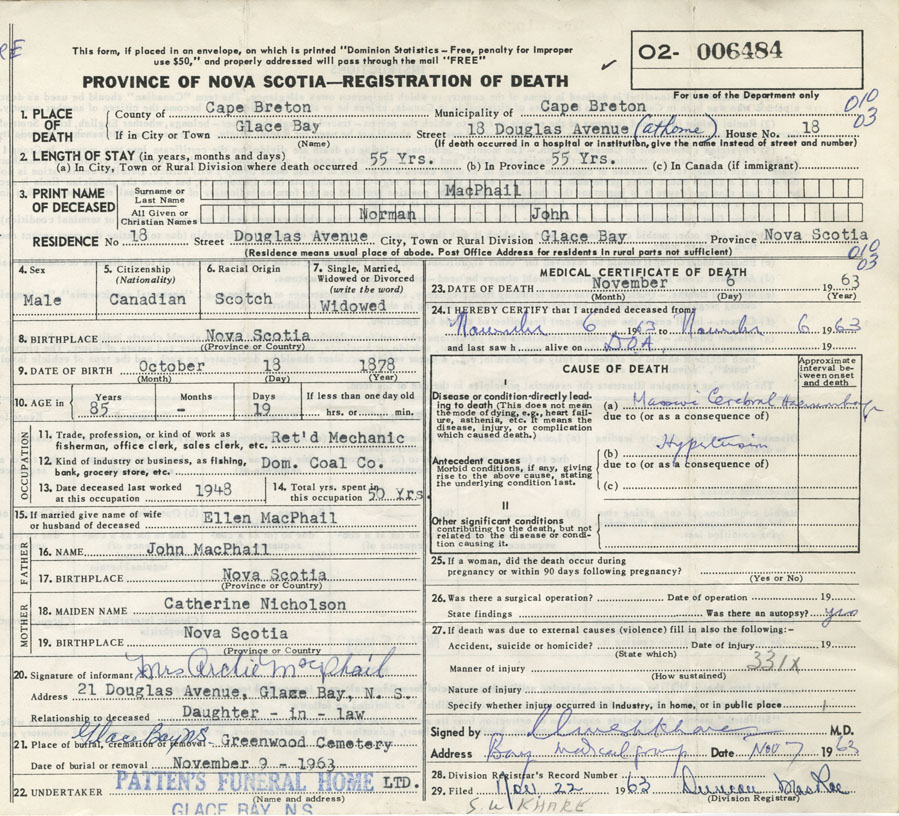 This form, if placed in an envelope, on which is printed "Dominion Statistics – Free, penalty for improper
use $50," and properly addressed will pass through the mail "FREE"
02- 006484
For use of the Department only
PROVINCE OF NOVA SCOTIA—REGISTRATION OF DEATH
010
03
1. PLACE OF DEATH County of Cape Breton Municipality of Cape Breton
If in City or Town Glace Bay Street 18 Douglas Avenue (at home) House No. 18
(Name) (If death occurred in a hospital or institution, give the name instead of street and number)
2. LENGTH OF STAY (in years, months and days)
(a) In City, Town or Rural Division where death occurred 55 Yrs. (b) In Province 55 Yrs. (c) In Canada (if immigrant)
3. PRINT NAME OF DECEASED Surname or Last Name MacPhail
All Given or Christian Names Norman John
RESIDENCE No 18 Street Douglas Avenue City, Town or Rural Division Glace Bay Province Nova Scotia
(Residence means usual place of abode. Post Office Address for residents in rural parts not sufficient)
010
03
4. Sex
Male
5. Citizenship
(Nationality)
Canadian
6. Racial Origin
Scotch
7. Single, Married,
Widowed or Divorced
(write the word)
Widowed
8. BIRTHPLACE Nova Scotia
(Province or Country)
9. DATE OF BIRTH October 18 1878
(Month) (Day) (Year)
10. AGE in Years Months Days If less than one day old
85 - 19 hrs. or min.
OCCUPATION
11. Trade, profession or kind of work as
fisherman, office clerk, sales clerk, etc. Ret'd Mechanic
12. Kind of industry or business, as fishing,
bank, grocery store, etc. Dom. Coal Co.
13. Date deceased last worked
at this occupation 1948
14. Total yrs. spent in
this occupation 50 Yrs.
15. If married give name of wife
or husband of deceased Ellen MacPhail
FATHER
16. NAME John MacPhail
17. BIRTHPLACE Nova Scotia
(Province or Country)
MOTHER
18. MAIDEN NAME Catherine Nicholson
19. BIRTHPLACE Nova Scotia
(Province or Country)
20. Signature of informant Mrs Archie MacPhail
Address 21 Douglas Avenue, Glace Bay, N. S.
Relationship to deceased Daughter - in - law
Glace Bay NS
21. Place of burial, cremation or removal Greenwood Cemetery
Date of burial or removal November 9 - 1963
22. UNDERTAKER PATTEN'S FUNERAL HOME LTD.
(Name and address)
GLACE BAY, N.S.
MEDICAL CERTIFICATE OF DEATH
23. DATE OF DEATH November 6 1963
(Month) (Day) (Year)
24. I HEREBY CERTIFY that I attended deceased from
November 6 1963 to November 6 1963
and last saw h alive on DOA 19
CAUSE OF DEATH
Approximate
interval be-
tween onset
and death
I
Disease or condition directly lead-
ing to death (This does not mean
the mode of dying, e.g., heart fail-
ure, asthenia, etc. It means the
disease, injury, or complication
which caused death.)
(a) Massive Cerebral Haemorrhage
due to (or as a consequence of)
Antecedent causes
Morbid conditions, if any, giving
rise to the above cause, stating
the underlying condition last.
(b) Hypertension
due to (or as a consequence of)
(c)
II
Other significant conditions
contributing to the death, but not
related to the disease or condi-
tion causing it.
25. If a woman, did the death occur during
pregnancy or within 90 days following pregnancy?
(Yes or No)
26. Was there a surgical operation? Date of operation 19
State findings Was there an autopsy? yes
27. If death was due to external causes (violence) fill in also the following:–
Accident, suicide or homicide? Date of injury 19
(State which)
331X
Manner of injury
(How sustained)
Nature of injury
Specify whether injury occurred in industry, in home, or in public place
Signed by M.D.
Address Bay Medical group Date Nov 7 1963
28. Division Registrar's Record Number
29. Filed Nov. 22 1963 Duncan MacRae
(Division Registrar)
S. U KHARE